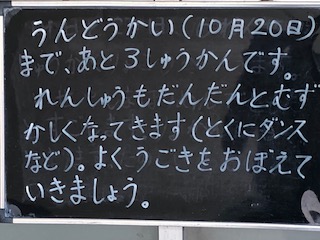 うんどうかい(10月20日)
まで、あと3しゅうかんです。
れんしゅうもだんだんとむず
かしくなってきます(とくにダンス
など)。よくうごきをおぼえて
いきましょう。